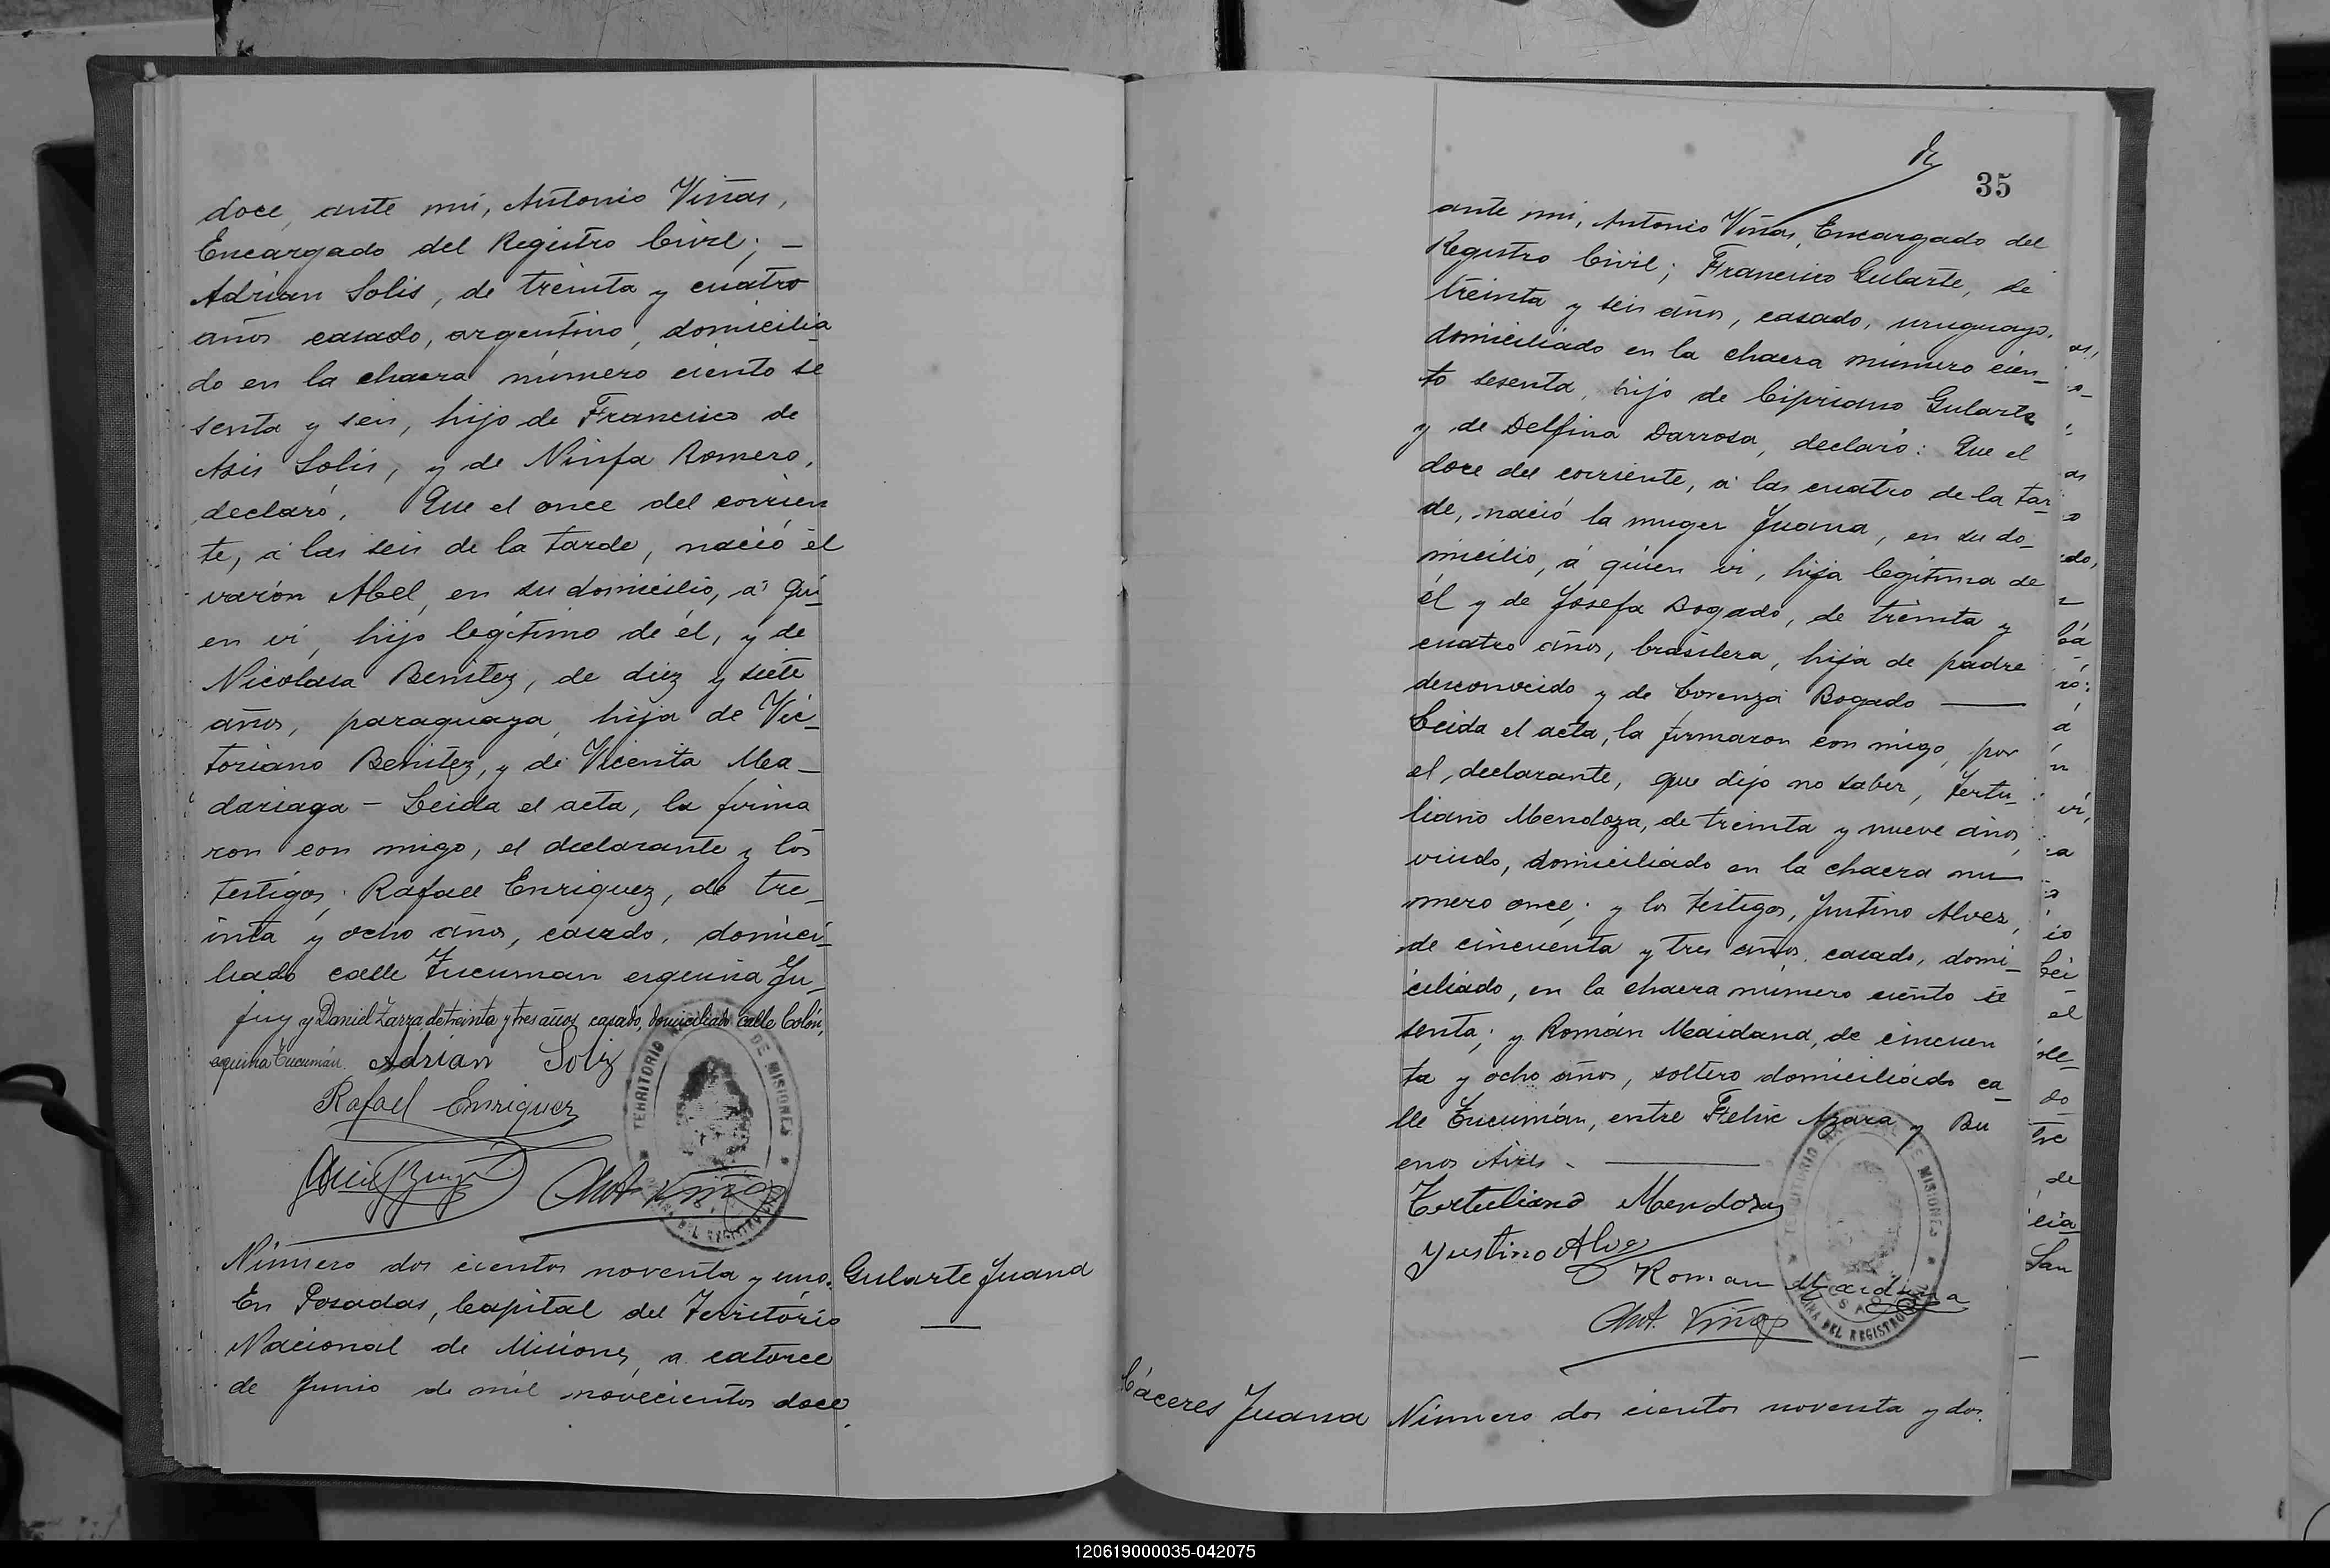 doce, ante mi, Antonio Viñas,
Encargado del Registro Civil; —
Adrian Solis, de treinta y cuatro
años casado, argentino, domicilia
do en la chacra número ciento se
senta y seis, hijo de Francisco de
Asis Solis, y de Ninfa Romero,
declaró. Que el once del corrien
te, á las seis de la tarde, nació el
varón Abel, en su domicilio, á qui-
en vi, hijo legítimo de él, y de
Nicolasa Benitez, de diez y siete
años, paraguaya, hija de Vic-
toriano Benitez, y de Vicenta Ma-
dariaga – Leida el acta, la firma
ron con migo, el declarante y los
testigos; Rafael Enriquez, de tre-
inta y ocho años, casado, domici-
liado calle Tucuman esquina Ju-
juy y Daniel Zarza, de treinta y tres años, casado, domiciliado calle Colón,
esquina Tucumán. Adrian Solis
Rafael Enriquez
Ant. Viñas
TERRITORIO NACIONAL DE MISIONES
Número dos cientos noventa y uno. Gularte Juana
En Posadas, Capital del Territorio
Nacional de Misiones, a catorce
de Junio de mil novecientos doce,
35
ante mi, Antonio Viñas, Encargado del
Registro Civil; Francisco Gularte, de
treinta y seis años, casado, uruguayo,
domiciliado en la chacra número cien-
to sesenta, hijo de Cipriano Gularte
y de Delfina Darrosa, declaró: Que el
doce del corriente, á las cuatro de la tar-
de, nació la muger Juana, en su do-
micilio, á quien vi, hija legítima de
él y de Josefa Bogado, de treinta y
cuatro años, brasilera, hija de padre
desconocido y de Lorenza Bogado —
Leida el acta, la firmaron con migo, por
el declarante, que dijo no saber, Tertu-
liano Mendoza, de treinta y nueve años,
viudo, domiciliado en la chacra nu
mero once; y los testigos, Justino Alvez,
de cincuenta y tres años, casado, domi-
ciliado, en la chacra número ciento se
senta; y Román Maidana, de cincuen
ta y ocho años, soltero domiciliado ca-
lle Tucumán, entre Felix Azara y Bu
enos Aires. —
Tertuliano Mendoza
Justino Alvez
Roman Mardana
Ant. Viñas
TERRITORIO NACIONAL DE MISIONES
DEL REGISTRO
Cáceres Juana Número dos cientos noventa y dos.
120619000035-042075